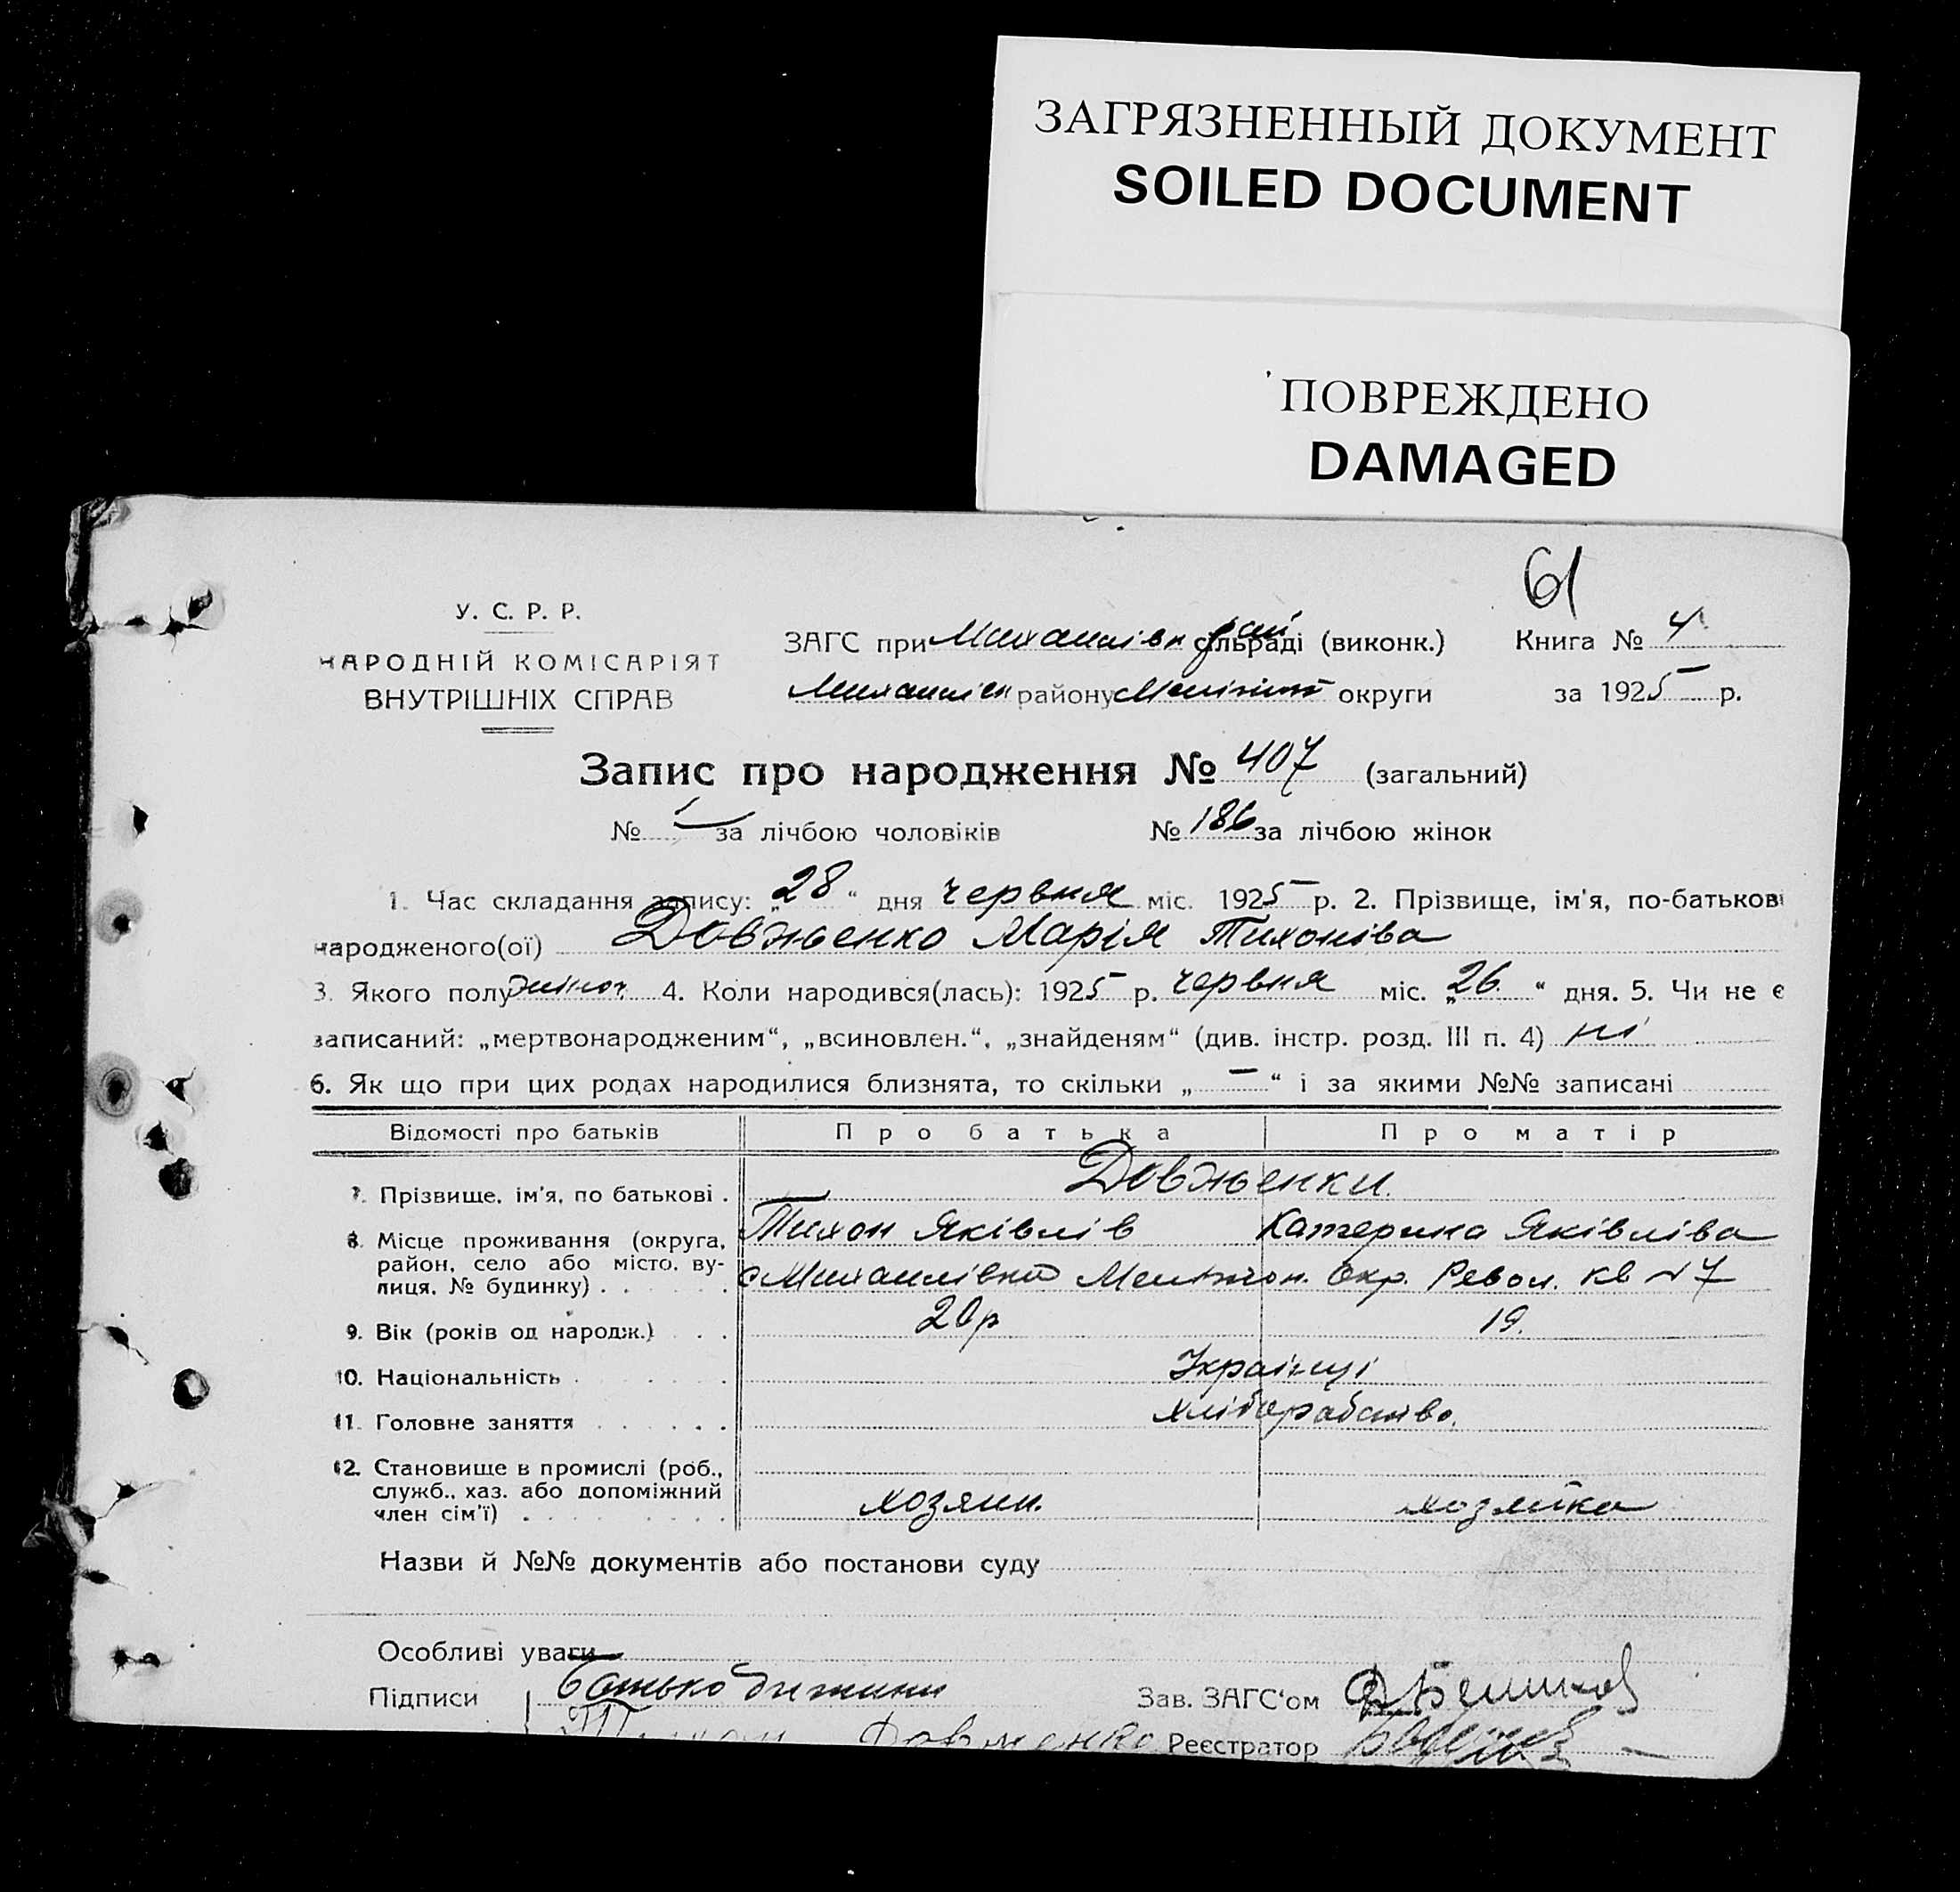 ЗАГРЯЗНЕННЫЙ ДОКУМЕНТ
SOILED DOCUMENT
ПОВРЕЖДЕНО
DAMAGED
61
У. С. Р. Р.
НАРОДНІЙ КОМІСАРІЯТ
ВНУТРІШНІХ СПРАВ
ЗАГС при Михайлівк рай сільраді (виконк.) Книга № 4
Михайлівк району Меліт округи за 1925 р.
Запис про народження № 407 (загальний)
№ — за лічбою чоловіків № 186 за лічбою жінок
1. Час складання запису: „28“ дня червня міс. 1925 р. 2. Прізвище, ім'я, по-батькові
народженого(ої) Довженко Марія Тихоніва
3. Якого полу жіноч. 4. Коли народився(лась): 1925 р. червня міс. „26“ дня. 5. Чи не є
записаний: „мертвонародженим“, „всиновлен.“, „знайденям“ (див. інстр. розд. III п. 4) ні
6. Як що при цих родах народилися близнята, то скільки „—“ і за якими №№ записані
Відомості про батьків Про батька Про матір
7. Прізвище, ім'я, по батькові . Довженки.
Тихон Яківлів Катерина Яківліва
8. Місце проживання (округа, район, село або місто, ву-
лиця, № будинку) . с Михайлівка Мелітоп. Окр. Револ. кв № 7
9. Вік (років од народж.) 20р 19.
10. Національність Українці
11. Головне заняття хліборобство.
12. Становище в промислі (роб.,
служб., хаз. або допоміжний
член сім'ї) хозяин. хозяйка
Назви й №№ документів або постанови суду
Особливі уваги
Підписи Батько дитини Зав. ЗАГС'ом
Тихон Довженко Реєстратор